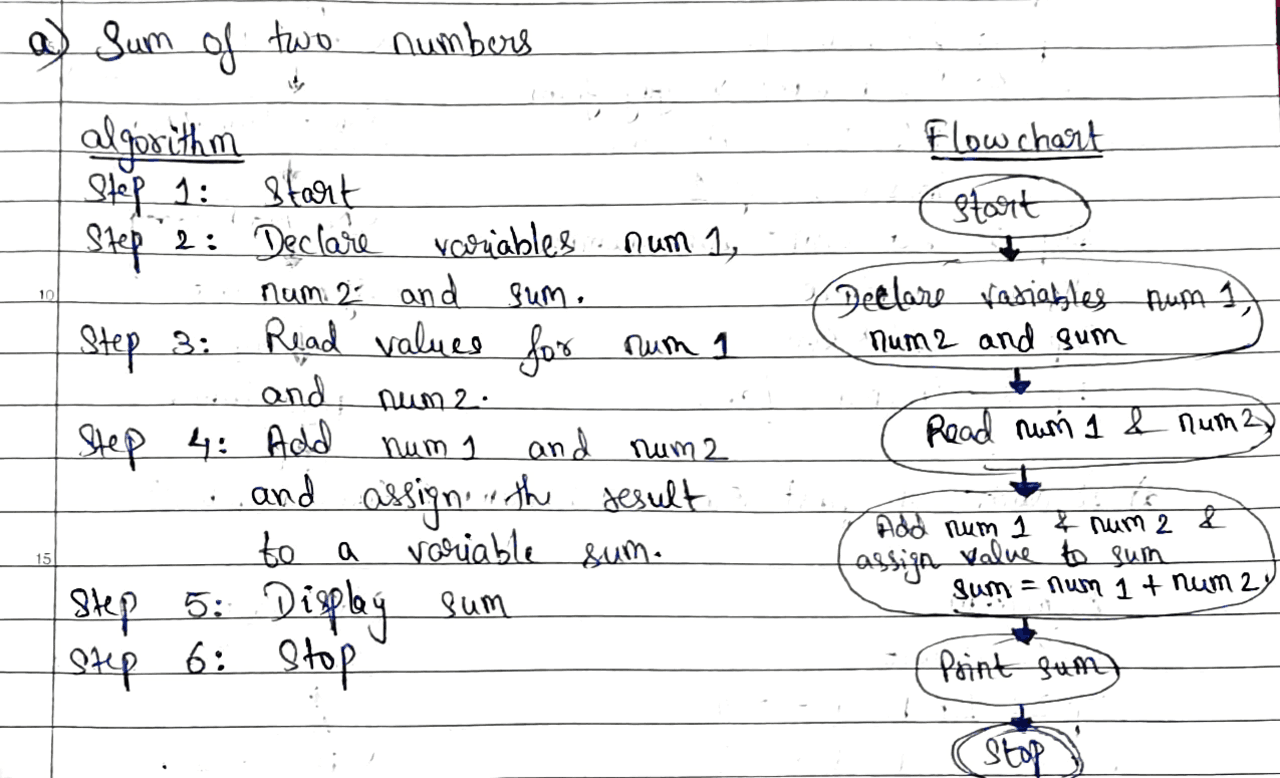 a) Sum of two numbers
algorithm
Step 1: Start
Step 2: Declare variables num 1,
num 2 and sum.
10
Step 3: Read values for num 1
and num 2.
Step 4: Add num 1 and num 2
and assign the result
to a variable sum.
15
Step 5: Display sum
Step 6: Stop
Flowchart
Start
Declare variables num 1,
num 2 and sum
Read num 1 & num 2
Add num 1 & num 2 &
assign value to sum
sum = num 1 + num 2
Print sum
Stop